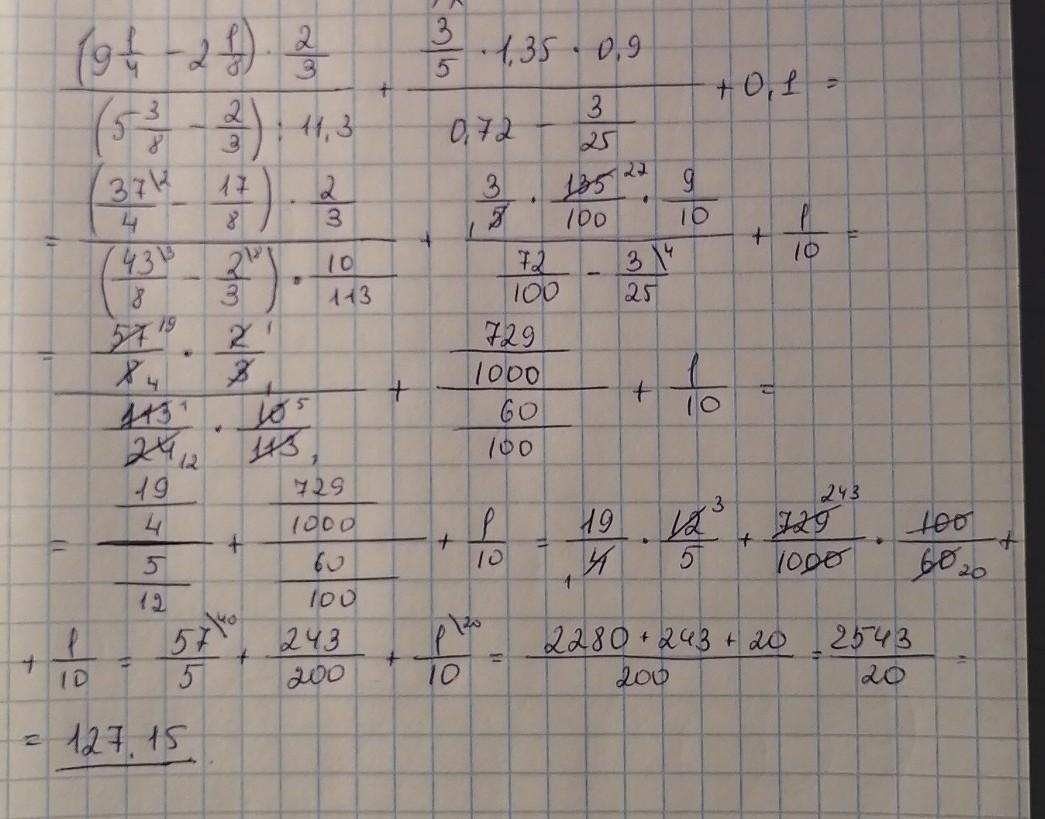 (9 1/4 − 2 1/8) · 2/3 / (5 3/8 − 2/3) : 11,3 + 3/5 · 1,35 · 0,9 / 0,72 − 3/25 + 0,1 =
= (37\2/4 − 17/8) · 2/3 / (43\3/8 − 2\8/3) · 10/113 + 3/5 1 · 135 27/100 · 9/10 / 72/100 − 3\4/25 + 1/10 =
= 57 19/8 4 · 2 1/3 1 / 113 1/24 12 · 10 5/113 1 + 729/1000 / 60/100 + 1/10 =
= 19/4 / 5/12 + 729/1000 / 60/100 + 1/10 = 19/4 1 · 12 3/5 + 729 243/1000 · 100/60 20 +
+ 1/10 = 57\40/5 + 243/200 + 1\20/10 = 2280 + 243 + 20/200 = 2543/20 =
= 127,15